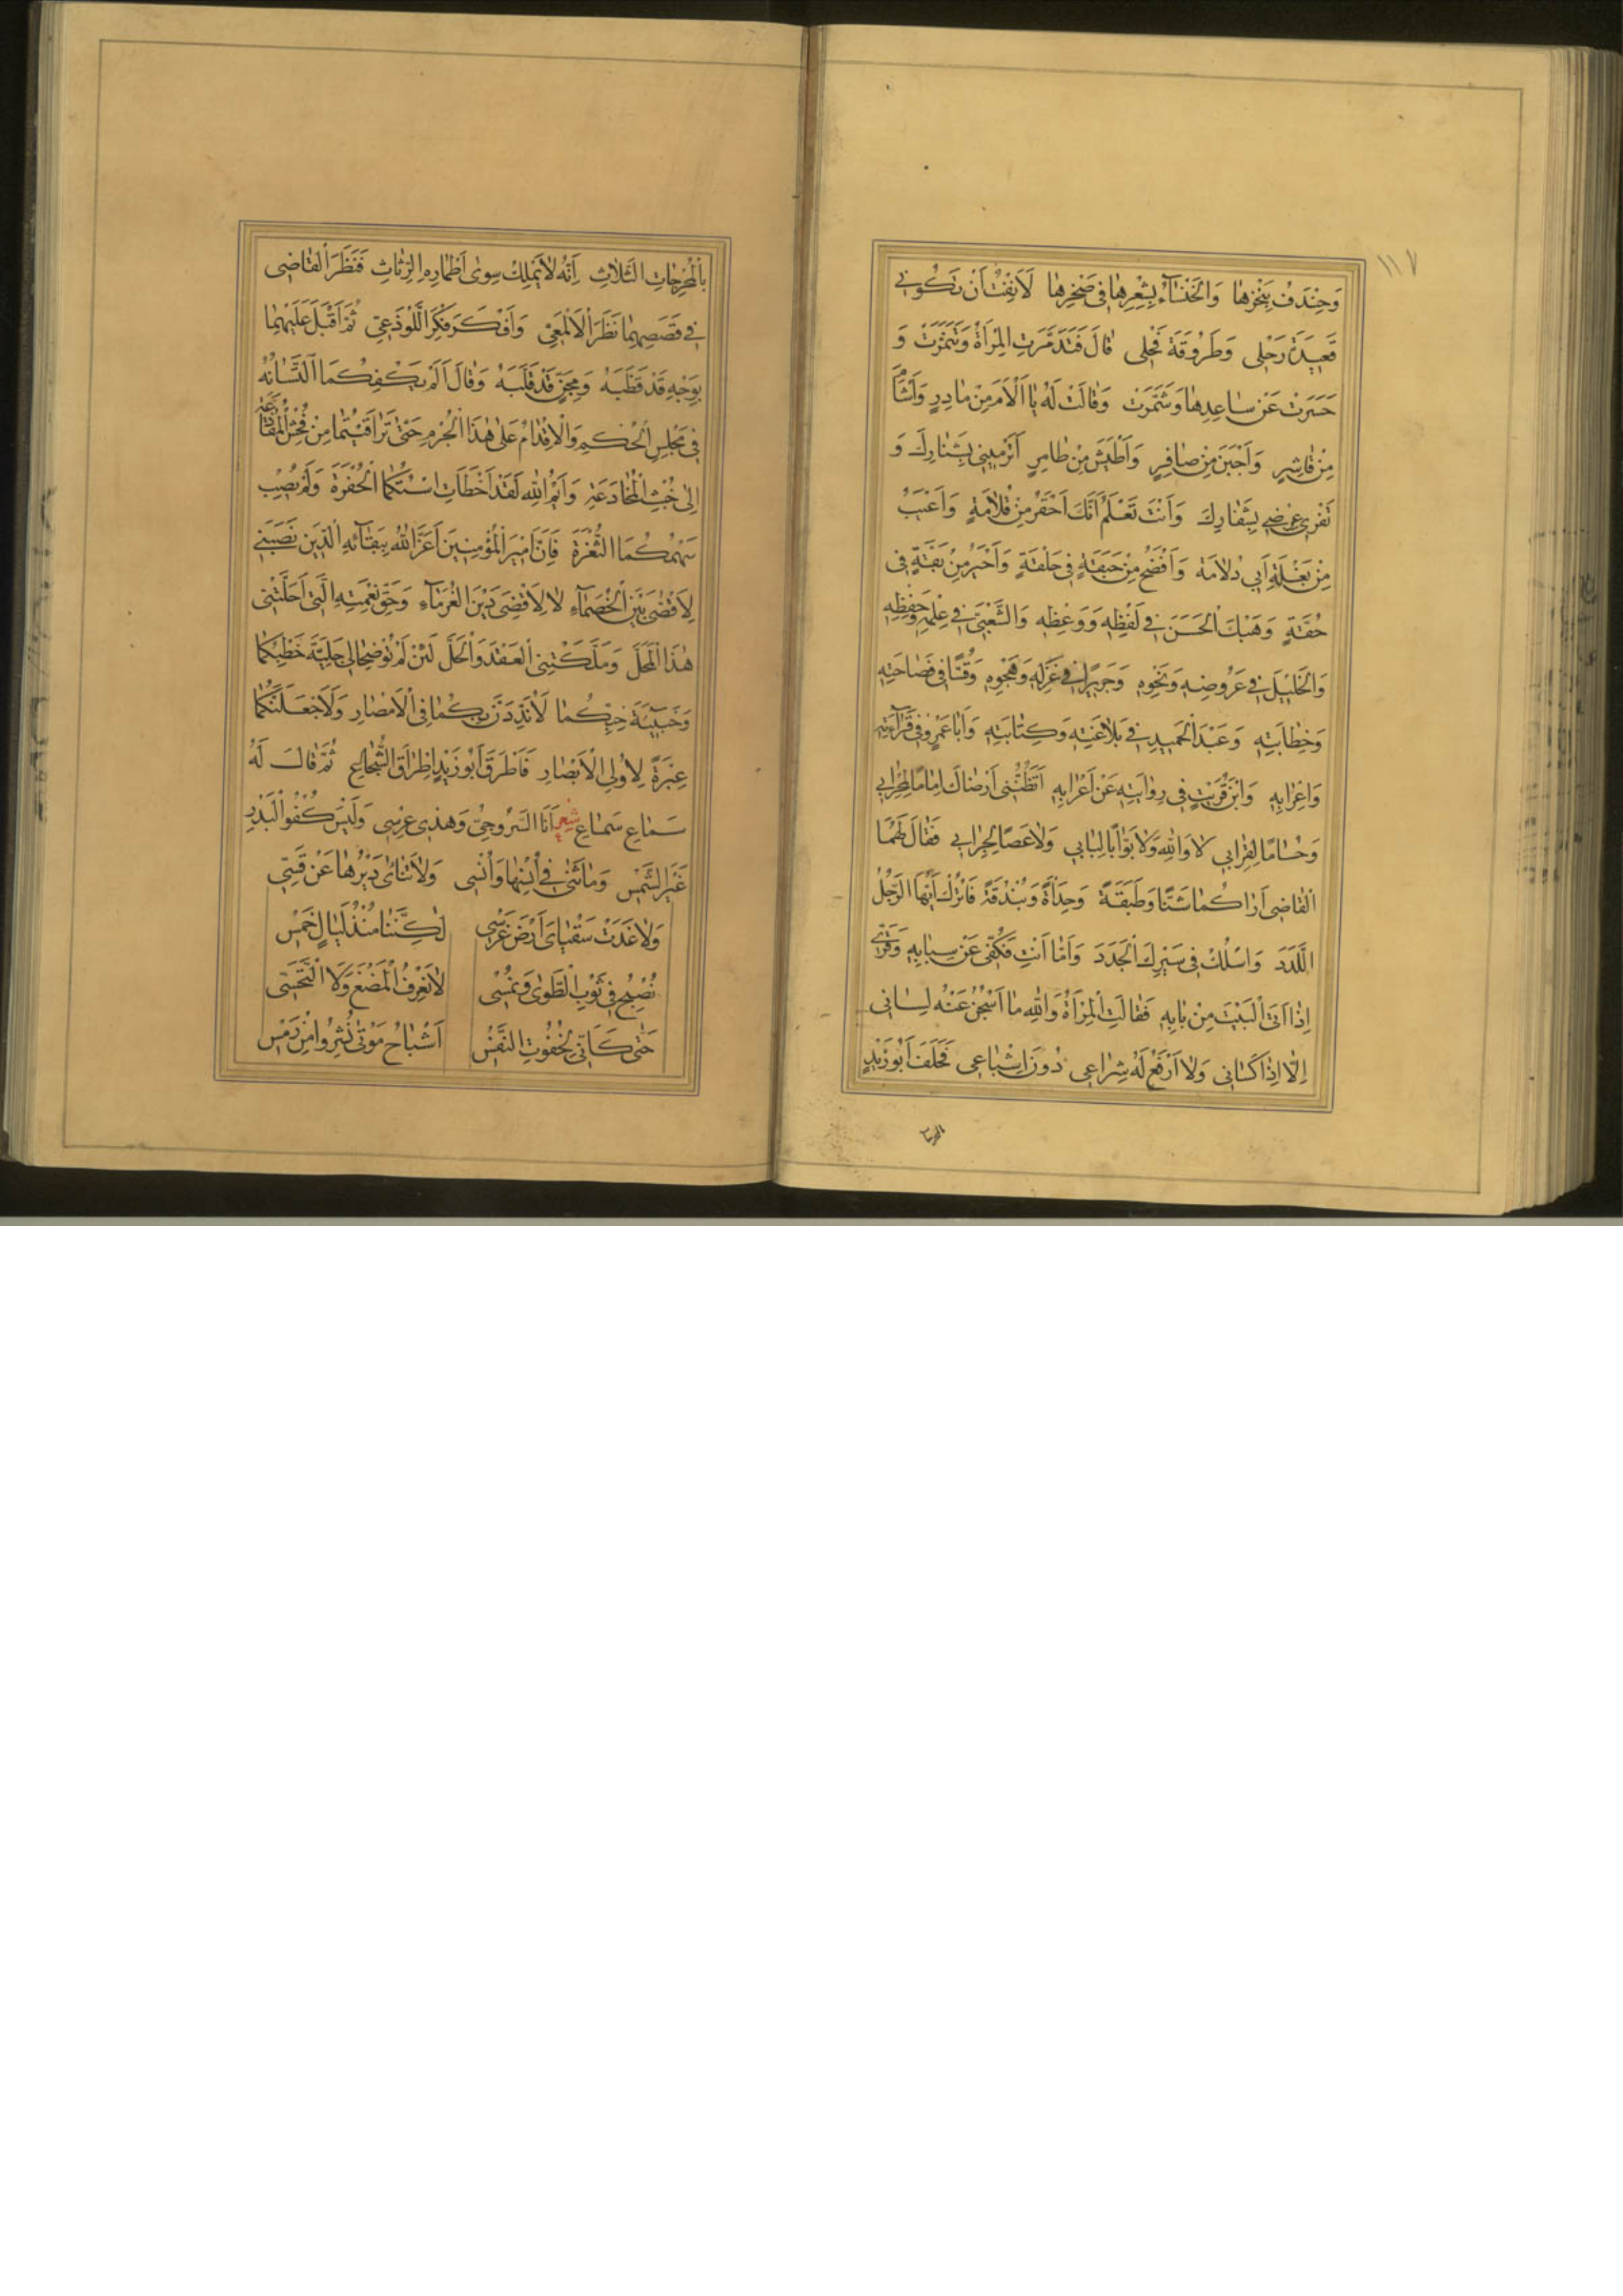 ١١٧
وَخِنْدَفُ بِفَخْرِهَا وَالْخَنْسَآءُ بِشِعْرِهَا فِى صَخْرِهَا لَاَنِفْتُ اَنْ تَكُونِى
قَعِيدَةَ رَحْلِى وَطَرُوقَةَ فَحْلِى قَالَ فَتَذَمَّرَتِ الْمَرْاَةُ وَتَنَمَّرَتْ وَ
حَسَرَتْ عَنْ سَاعِدِهَا وَشَمَّرَتْ وَقَالَتْ لَهُ يَا اَلْاَمَ مِنْ مَادِرٍ وَاَشْاَمَ
مِنْ قَاشِرٍ وَاَجْبَنَ مِنْ صَافِرٍ وَاَطْيَشَ مِنْ طَامِرٍ اَتَرْمِينِى بِشَنَارِكَ وَ
تَفْرِى عِرْضِى بِشِفَارِكَ وَاَنْتَ تَعْلَمُ اَنَّكَ اَحْقَرُ مِنْ قُلَامَةٍ وَاَعْيَبُ
مِنْ بَغْلَةِ اَبِى دُلَامَةَ وَاَفْضَحُ مِنْ حَبَقَةٍ فِى حَلْقَةٍ وَاَحْيَرُ مِنْ بَقَّةٍ فِى
حُقَّةٍ وَهَبْكَ الْحَسَنَ فِى لَفْظِهِ وَوَعْظِهِ وَالشَّعْبِىَّ فِى عِلْمِهِ وَحِفْظِهِ
وَالْخَلِيلَ فِى عَرُوضِهِ وَنَحْوِهِ وَجَرِيرًا فِى غَزَلِهِ وَهَجْوِهِ وَقُسًّا فِى فَصَاحَتِهِ
وَخِطَابَتِهِ وَعَبْدَ الْحَمِيدِ فِى بَلَاغَتِهِ وَكِتَابَتِهِ وَاَبَا عَمْرٍو فِى قِرَآءَتِهِ
وَاِعْرَابِهِ وَابْنَ قُرَيْبٍ فِى رِوَايَتِهِ عَنْ اَعْرَابِهِ اَتَظُنُّنِى اَرْضَاكَ اِمَامًا لِمِحْرَابِى
وَحُسَامًا لِقِرَابِى لَا وَاللّٰهِ وَلَا بَوَّابًا لِبَابِى وَلَا عَصًا لِجِرَابِى فَقَالَ لَهُمَا
الْقَاضِى اَرَاكُمَا شَنًّا وَطَبَقَةَ وَحِدَاَةً وَبُنْدُقَةً فَاتْرُكْ اَيُّهَا الرَّجُلُ
اللَّدَدَ وَاسْلُكْ فِى سَيْرِكَ الْجَدَدَ وَاَمَّا اَنْتِ فَكُفِّى عَنْ سِبَابِهِ وَقَرِّى
اِذَا اَتَى الْبَيْتَ مِنْ بَابِهِ فَقَالَتِ الْمَرْاَةُ وَاللّٰهِ مَا اَسْجُنُ عَنْهُ لِسَانِى
اِلَّا اِذَا كَسَانِى وَلَا اَرْفَعُ لَهُ شِرَاعِى دُونَ اِشْبَاعِى فَحَلَفَ اَبُو زَيْدٍ
بِالْمُحَرِّجَاتِ الثَّلَاثِ اَنَّهُ لَا يَمْلِكُ سِوَى اَطْمَارِهِ الرِّثَاثِ فَنَظَرَ الْقَاضِى
فِى قَصَصِهِمَا نَظَرَ الْاَلْمَعِىِّ وَاَفْكَرَ فِكْرَ اللَّوْذَعِىِّ ثُمَّ اَقْبَلَ عَلَيْهِمَا
بِوَجْهٍ قَدْ قَطَّبَهُ وَمِجَنٍّ قَدْ قَلَبَهُ وَقَالَ اَلَمْ يَكْفِكُمَا التَّسَافُهُ
فِى مَجْلِسِ الْحُكْمِ وَالْاِقْدَامُ عَلَى هٰذَا الْجُرْمِ حَتَّى تَرَاقَيْتُمَا مِنْ فُحْشِ الْمُقَاذَعَةِ
اِلَى خُبْثِ الْمُخَادَعَةِ وَاَيْمُ اللّٰهِ لَقَدْ اَخْطَاَتِ اسْتُكُمَا الْحُفْرَةَ وَلَمْ يُصِبْ
سَهْمُكُمَا الثُّغْرَةَ فَاِنَّ اَمِيرَ الْمُؤْمِنِينَ اَعَزَّ اللّٰهُ بِبَقَآئِهِ الدِّينَ نَصَبَنِى
لِاَقْضِىَ بَيْنَ الْخُصَمَآءِ لَا لِاَقْضِىَ دَيْنَ الْغُرَمَآءِ وَحَقِّ نِعْمَتِهِ الَّتِى اَحَلَّتْنِى
هٰذَا الْمَحَلَّ وَمَلَّكَتْنِى الْعَقْدَ وَالْحَلَّ لَئِنْ لَمْ تُوضِحَا لِى جَلِيَّةَ خَطْبِكُمَا
وَخَبِيئَةَ خِبِّكُمَا لَاُنَدِّدَنَّ بِكُمَا فِى الْاَمْصَارِ وَلَاَجْعَلَنَّكُمَا
عِبْرَةً لِاُولِى الْاَبْصَارِ فَاَطْرَقَ اَبُو زَيْدٍ اِطْرَاقَ الشُّجَاعِ ثُمَّ قَالَ لَهُ
سَمَاعِ سَمَاعِ شعر اَنَا السَّرُوجِىُّ وَهٰذِى عِرْسِى وَلَيْسَ كُفْوَ الْبَدْرِ
غَيْرُ الشَّمْسِ وَمَا تَنَافَى اُنْسُهَا وَاُنْسِى وَلَا تَنَاءَى دَيْرُهَا عَنْ قَسِّى
وَلَا غَدَتْ سُقْيَاىَ اَرْضَ غَرْسِى لٰكِنَّنَا مُنْذُ لَيَالٍ خَمْسِ
نُصْبِحُ فِى ثَوْبِ الطَّوَى وَنُمْسِى لَا نَعْرِفُ الْمَضْغَ وَلَا التَّحَسِّى
حَتَّى كَاَنَّا لِخُفُوتِ النَّفْسِ اَشْبَاحُ مَوْتَى نُشِرُوا مِنْ رَمْسِ